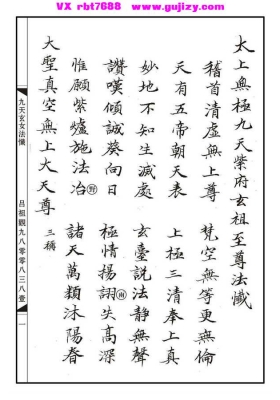 VX rbt7688 www.gujizy.com
太上無極九天紫府玄祖至尊法懺
稽首清虛無上尊 梵空無等更無倫
天有五帝朝天表 上極三清奉上真
妙地不知生滅處 玄臺說法靜無聲
讚嘆傾誠葵向日 極情揚詡㘴高深
惟願紫爐施法冶 諸天萬類沐陽春
大聖真空無上大天尊 三稱
九天玄女法懺
呂祖觀九八零零八三八壹
一